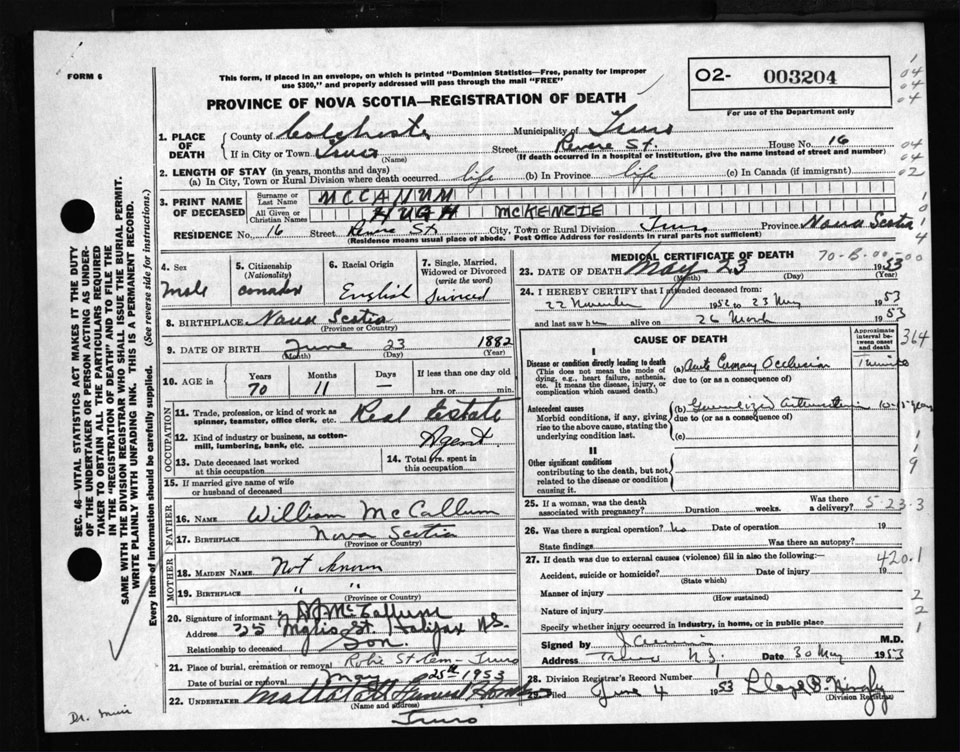 FORM 6
This form, if placed in an envelope, on which is printed "Dominion Statistics—Free, penalty for improper
use $300," and properly addressed will pass through the mail "FREE"
O2- 003204
For use of the Department only
PROVINCE OF NOVA SCOTIA—REGISTRATION OF DEATH
1. PLACE OF DEATH
County of Colchester Municipality of Truro
If in City or Town Truro Street Revere St. House No. 16
(Name) (If death occurred in a hospital or institution, give the name instead of street and number)
2. LENGTH OF STAY (in years, months and days)
(a) In City, Town or Rural Division where death occurred life (b) In Province life (c) In Canada (if immigrant)
3. PRINT NAME OF DECEASED
Surname or Last Name MCCALLUM
All Given or Christian Names HUGH MCKENZIE
RESIDENCE No. 16 Street Revere St. City, Town or Rural Division Truro Province Nova Scotia
(Residence means usual place of abode. Post Office Address for residents in rural parts not sufficient)
4. Sex
Male
5. Citizenship
(Nationality)
Canada
6. Racial Origin
English
7. Single, Married,
Widowed or Divorced
(write the word)
Divorced
8. BIRTHPLACE Nova Scotia
(Province or Country)
9. DATE OF BIRTH June 23 1882
(Month) (Day) (Year)
10. AGE in
Years 70
Months 11
Days —
If less than one day old
hrs. or min.
OCCUPATION
11. Trade, profession, or kind of work as
spinner, teamster, office clerk, etc. Real Estate
12. Kind of industry or business, as cotton-
mill, lumbering, bank, etc. Agent
13. Date deceased last worked
at this occupation
14. Total yrs. spent in
this occupation
15. If married give name of wife
or husband of deceased
FATHER
16. NAME William McCallum
17. BIRTHPLACE Nova Scotia
(Province or Country)
MOTHER
18. MAIDEN NAME Not known
19. BIRTHPLACE " "
(Province or Country)
20. Signature of informant McCallum
Address 35 St. Halifax N.S.
Relationship to deceased Son.
21. Place of burial, cremation or removal Robie St Cem - Truro
Date of burial or removal May 25th 1953
22. UNDERTAKER Mattatall Funeral Home
(Name and address)
Truro
MEDICAL CERTIFICATE OF DEATH
23. DATE OF DEATH May 23 1953
(Month) (Day)
24. I HEREBY CERTIFY that I attended deceased from:
22 November 1952 to 23 May 1953
and last saw him alive on 26 March 1953
CAUSE OF DEATH
Approximate
interval be-
tween onset
and death
I
Disease or condition directly leading to death
(This does not mean the mode of
dying, e.g., heart failure, asthenia,
etc. It means the disease, injury, or
complication which caused death.)
(a) Acute Coronary Occlusion 1 minute
due to (or as a consequence of)
Antecedent causes
Morbid conditions, if any, giving
rise to the above cause, stating the
underlying condition last.
(b) Generalized 10-15 years
due to (or as a consequence of)
(c)
II
Other significant conditions
contributing to the death, but not
related to the disease or condition
causing it.
25. If a woman, was the death
associated with pregnancy? Duration weeks. Was there
a delivery?
26. Was there a surgical operation? No Date of operation 19
State findings Was there an autopsy?
27. If death was due to external causes (violence) fill in also the following:
Accident, suicide or homicide? Date of injury 19
(State which)
Manner of injury
(How sustained)
Nature of injury
Specify whether injury occurred in industry, in home, or in public place
Signed by M.D.
Address Truro N.S. Date 30 May 1953
28. Division Registrar's Record Number
29. Filed June 4 1953
(Division Registrar)
SEC. 46—VITAL STATISTICS ACT MAKES IT THE DUTY
OF THE UNDERTAKER OR PERSON ACTING AS UNDER-
TAKER TO OBTAIN ALL THE PARTICULARS REQUIRED
IN THE "REGISTRATION OF DEATH" AND TO FILE THE
SAME WITH THE DIVISION REGISTRAR WHO SHALL ISSUE THE BURIAL PERMIT.
WRITE PLAINLY WITH UNFADING INK. THIS IS A PERMANENT RECORD.
Every item of information should be carefully supplied. (See reverse side for instructions.)
364
5-23-3
420.1